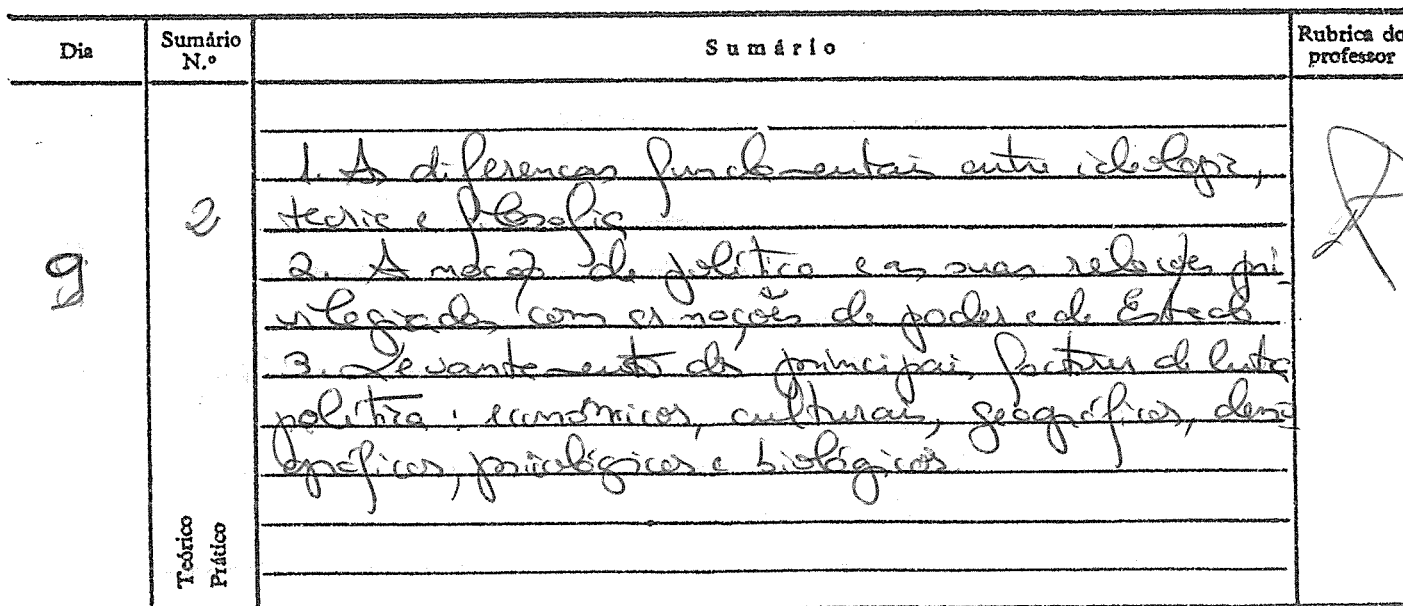 Dia
Sumário N.º
Sumário
Rubrica do professor
9
2
1. As diferenças fundamentais entre ideologia,
teoria e filosofia
2. A noção de política e as suas relações pri
vilegiadas com as noções de poder e de Estado
3. Levantamento dos principais factores de luta
política: económicos, culturais, geográficos, demo
gráficos, psicológicos e biológicos
Teórico
Prático